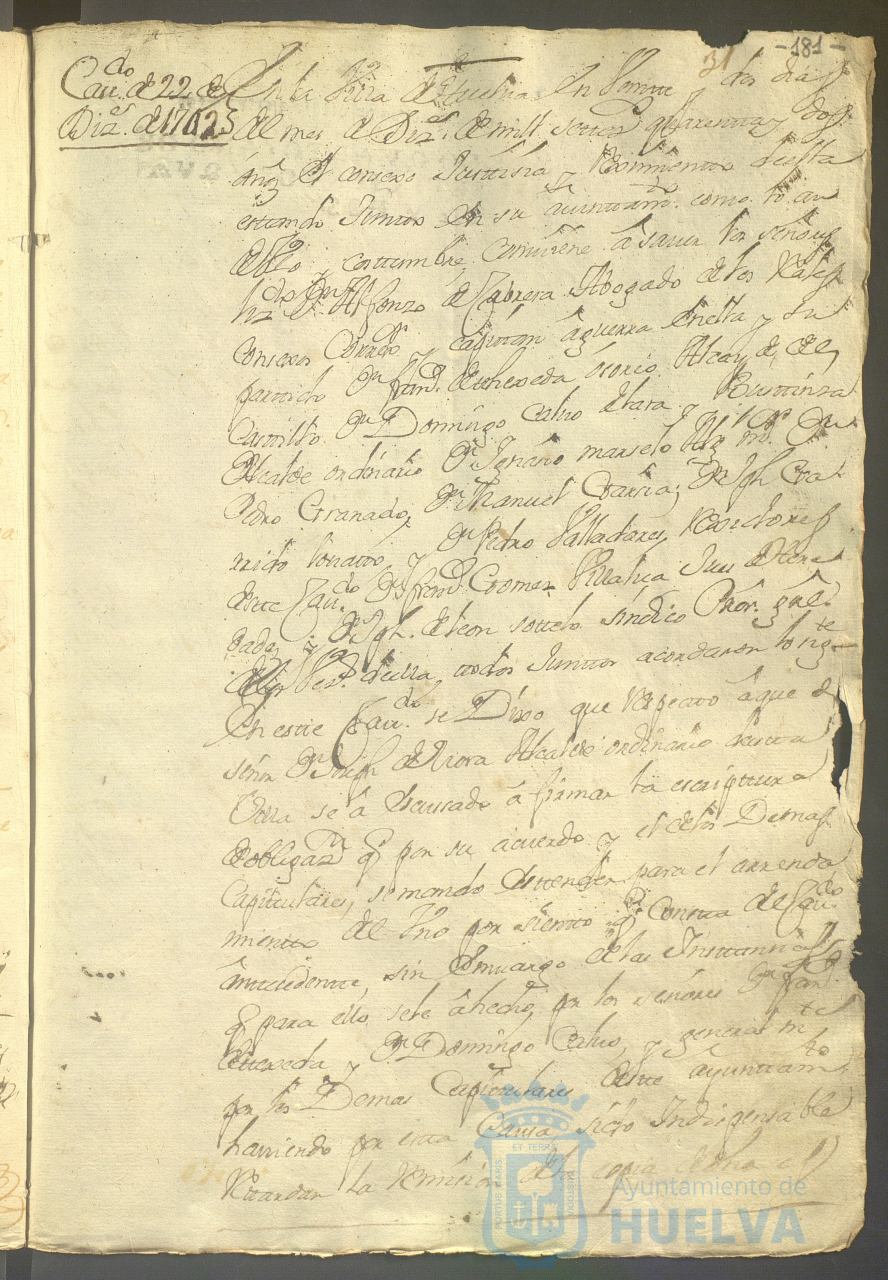 31 -181-
Cau.do de 22 de
Diz.e de 1742
En la Villa de Huelva En Veinte y dos dias
del mes de Diz.e de mill settez.s quarenta y dos
años El consexo Justisia y Reximiento de esta
estando Juntos en su ayuntam.to como lo an
de Uso y costumbre combiene a sauer los señores
Liz.do Dn Alfonzo de Cabrera Abogado de los Reales
consexos Correx.or y capitan a guerra de ella y su
partido Dn Fran.co de Quexeda osorio Alcayde del
Castillo Dn Domingo Calvo de Lara y
Alcalde ordinario Dn Ignacio marselo Alg.l m.or Dn
Pedro Granado, Dn Manuel Garsia; Dn Jph Ga-
rrido y Dn Pedro Valladares, Rexidores
deste Cau.do Dn Fran.co Gomez Juez de
dad; Dn Jph de leon sottelo sindico Pror. gral.
de ella, todos Juntos acordaron lo sig.te
En este Cau.do se Dixo que respecto a que el
señor Dn Joseph de Mora Alcalde ordinario de esta
Villa se a escusado a firmar la escriptura
de obligaz.on q por su acuerdo y el de los Demas
Capitulares, se mando estender para el arrenda
miento del Uno por siento q consta del Cau.do
antecedente, sin embargo de las Instansias
q para ello se le a hecho, por los señores Dn Fran.co
de Quexeda y Dn Domingo Calvo, y general m.te
por los Demas Capitulares deste ayuntam.to
haviendo por esta Causa sido Indispensable
Retardar la remision de la copia de ella al
PORTUS MARIS
ET TERRÆ
CUSTODIA
Ayuntamiento de
HUELVA